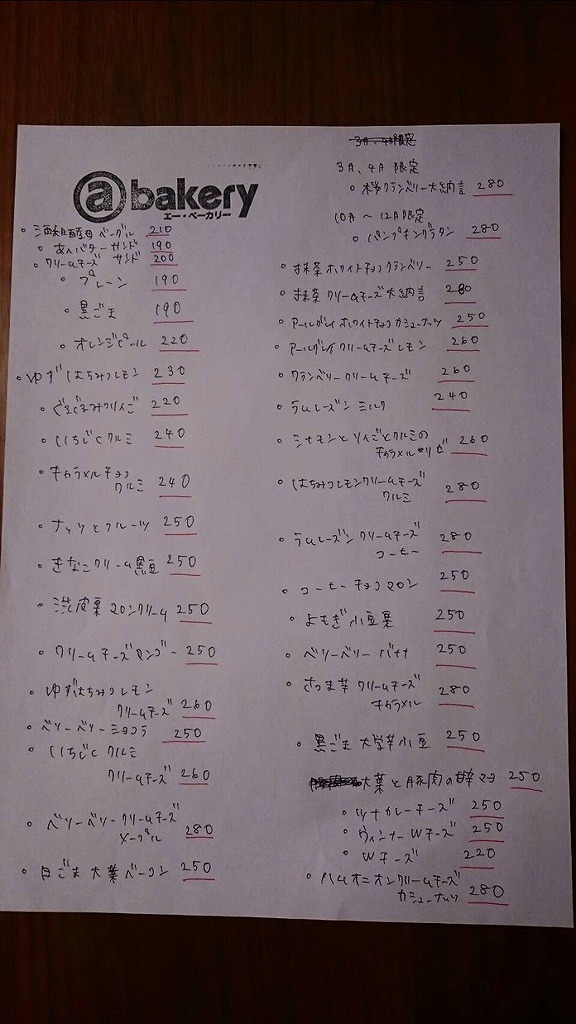 @bakery
エー・ベーカリー
酒粕酵母ベーグル 210
あんバターサンド 190
クリームチーズ サンド 200
プレーン 190
黒ごま 190
オレンジピール 220
ゆずはちみつレモン 230
ぐるぐるみつりんご 220
いちじくクルミ 240
キャラメルチョコ
クルミ 240
ナッツとフルーツ 250
きなこクリーム黒豆 250
渋皮栗 マロンクリーム 250
クリームチーズマンゴー 250
ゆずはちみつレモン
クリームチーズ 260
ベリーベリーショコラ 250
いちじくクルミ
クリームチーズ 260
ベリーベリークリームチーズ
メープル 280
白ごま 大葉ベーコン 250
3月、4月限定
3月、4月 限定
桜クランベリー大納言 280
10月〜12月限定
パンプキングラタン 280
抹茶ホワイトチョコクランベリー 250
抹茶クリームチーズ大納言 280
アールグレイホワイトチョコカシューナッツ 250
アールグレイクリームチーズレモン 260
クランベリークリームチーズ 260
ラムレーズン ミルク 240
シナモンとリンゴとクルミの
キャラメルリゼ 260
はちみつレモンクリームチーズ
クルミ 280
ラムレーズンクリームチーズ
コーヒー 280
コーヒーチョコマロン 250
よもぎ小豆栗 250
ベリーベリーバナナ 250
さつま芋クリームチーズ
キャラメル 280
黒ごま大学芋小豆 250
大葉と豚肉の甘辛マヨ 250
ツナカレーチーズ 250
ウィンナーWチーズ 250
Wチーズ 220
ハムオニオンクリームチーズ
カシューナッツ 280